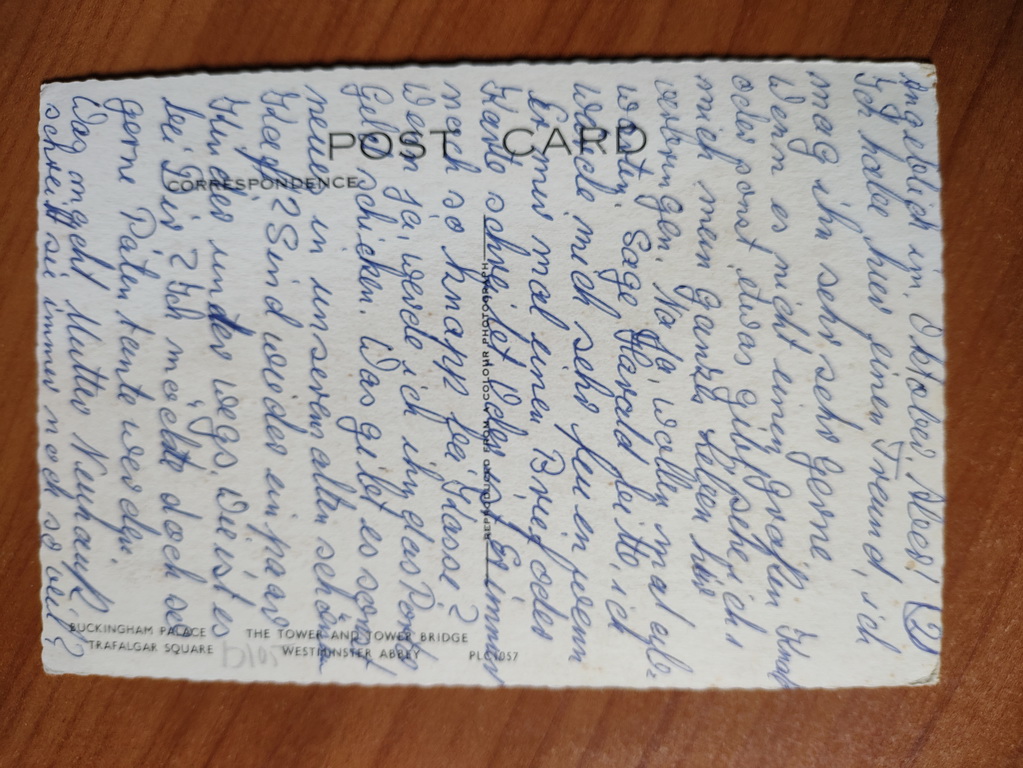 POST CARD
CORRESPONDENCE
BUCKINGHAM PALACE THE TOWER AND TOWER BRIDGE
TRAFALGAR SQUARE WESTMINSTER ABBEY PLC1057
Angeblich im Oktober. Aber! (2)
Ich habe hier einen Freund, ich
mag ihn sehr sehr gerne.
Wenn es nicht einen großen Knall
oder sonst etwas gibt, sehe ich
mich mein ganzes Leben hier
verbringen. Na ja, wollen mal
warten. Sage Harald bitte, ich
würde mich sehr freuen wenn
Er mir mal einen Brief oder
Karte schreibt oder ist Er immer
noch so knapp bei Kasse?
Wenn ja, werde ich ihm das Porto
Geld schicken. Was gibt es sonst
neues in unserem alten schönen
Kaff? Sind wieder ein paar
Kinder unterwegs. Wie ist es
bei Dir? Ich möchte doch so
gerne Patentante werden.
Was macht Mutter
schreibt sie immer noch so viel?